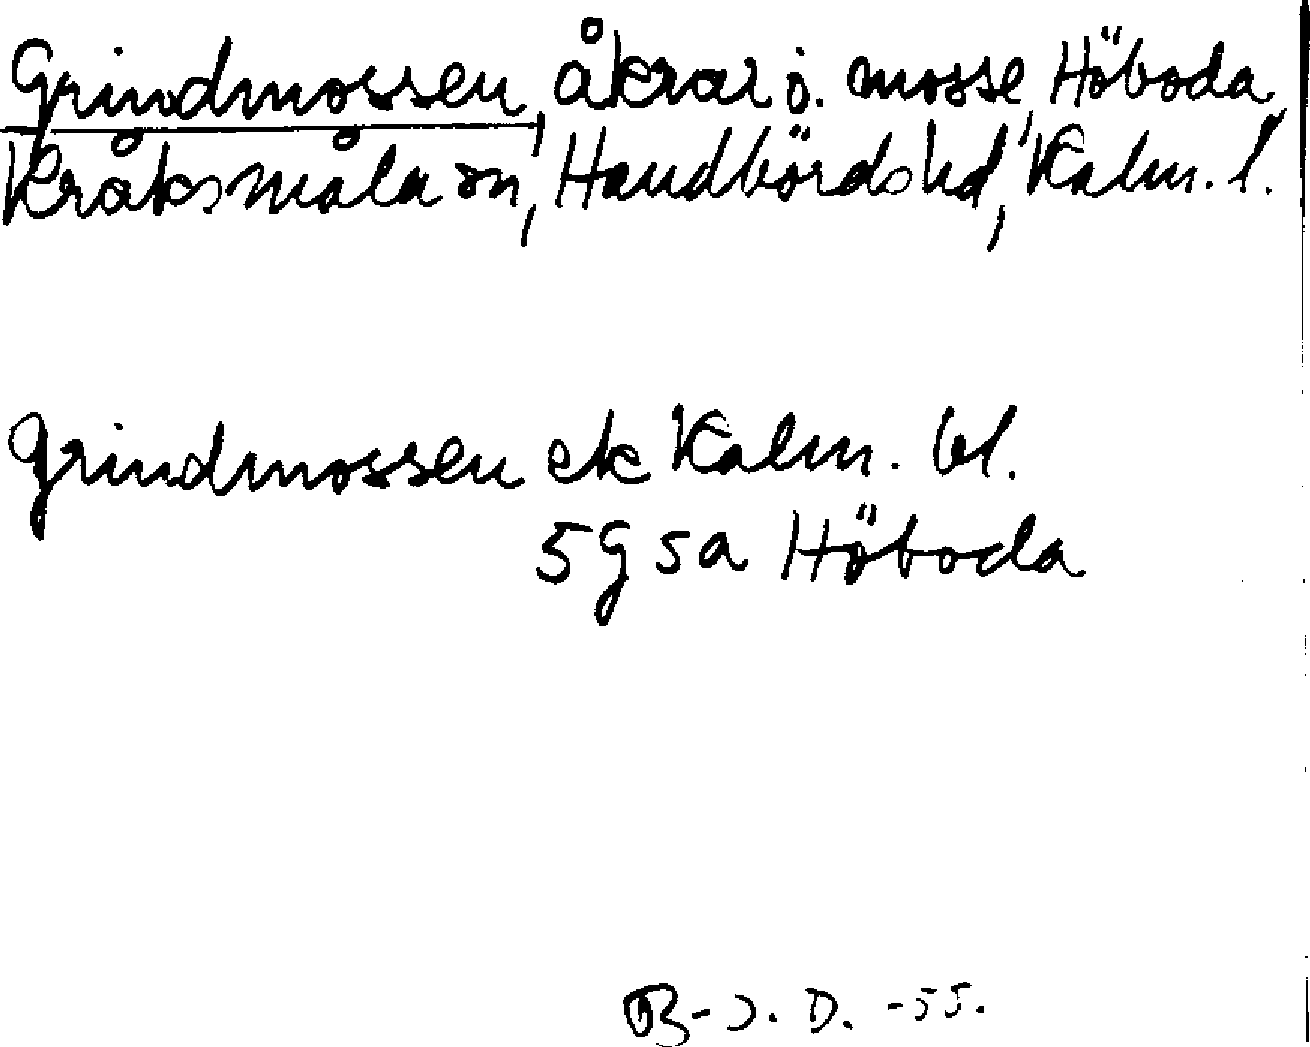 Grindmossen, åkrar i. mosse, Höboda,
Kråksmåla sn, Handbörds hd, Kalm. l.
Grindmossen ek Kalm. bl.
5G5a Höboda
B-J. D. -55.